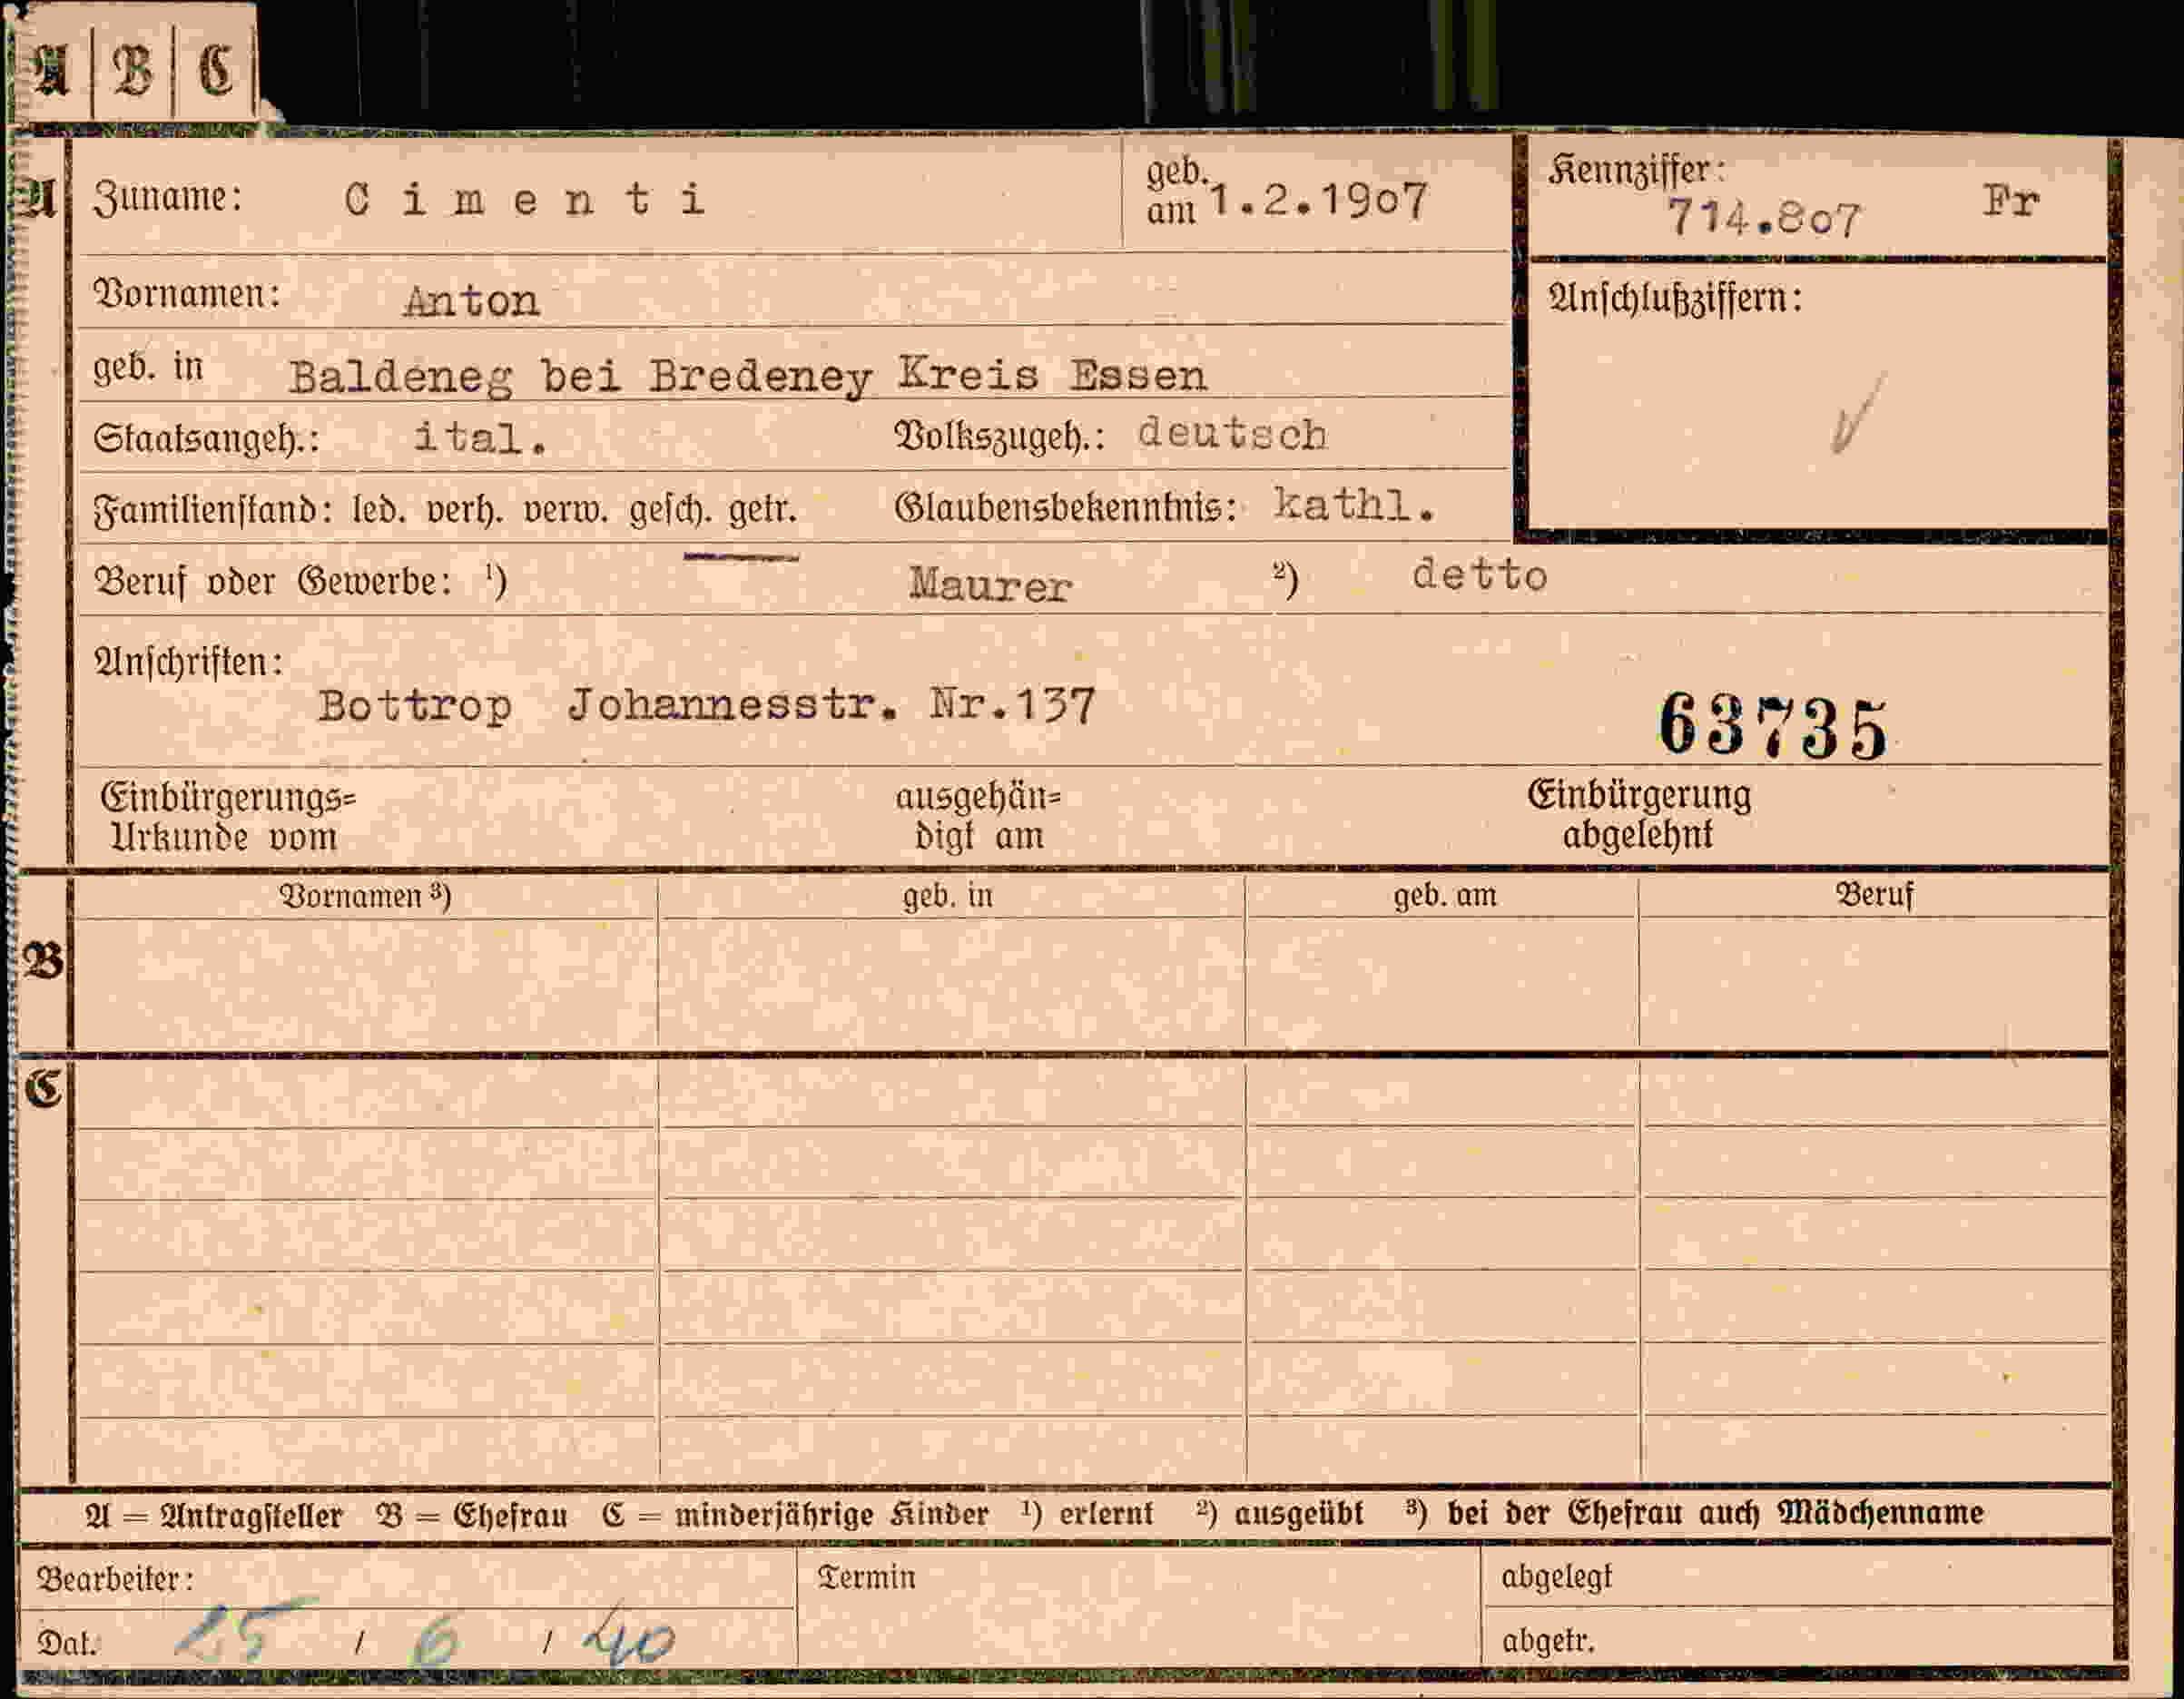 A B C
A Zuname: Cimenti geb. am 1.2.1907 Kennziffer: 714.807 Fr
Vornamen: Anton Anschlußziffern:
geb. in Baldeneg bei Bredeney Kreis Essen
Staatsangeh.: ital. Volkszugeh.: deutsch
Familienstand: led. verh. verw. gesch. getr. Glaubensbekenntnis: kathl.
Beruf oder Gewerbe: ¹) Maurer ²) detto
Anschriften:
Bottrop Johannesstr. Nr.137 63735
Einbürgerungs= ausgehän= Einbürgerung
Urkunde vom digt am abgelehnt
Vornamen ³) geb. in geb. am Beruf
B
C
A = Antragsteller B = Ehefrau C = minderjährige Kinder ¹) erlernt ²) ausgeübt ³) bei der Ehefrau auch Mädchenname
Bearbeiter: Termin abgelegt
Dat. 25 / 6 / 40 abgetr.